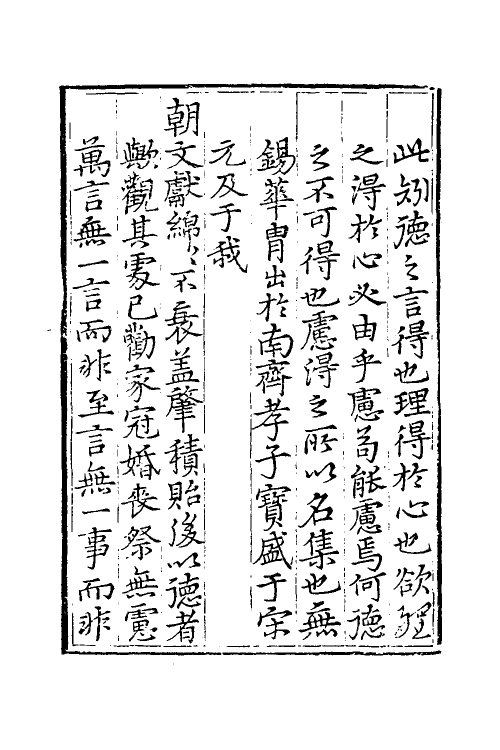 此矧德之言得也理得於心也欲理
之淂於心必由乎慮苟能慮焉何德
之不可得也慮淂之所以名集也無
錫華胄出於南齊孝子寶盛于宋
元及于我
朝文獻綿〻不衰盖肇積貽後以德者
歟觀其處已勸家冠婚喪祭無慮
萬言無一言而非至言無一事而非